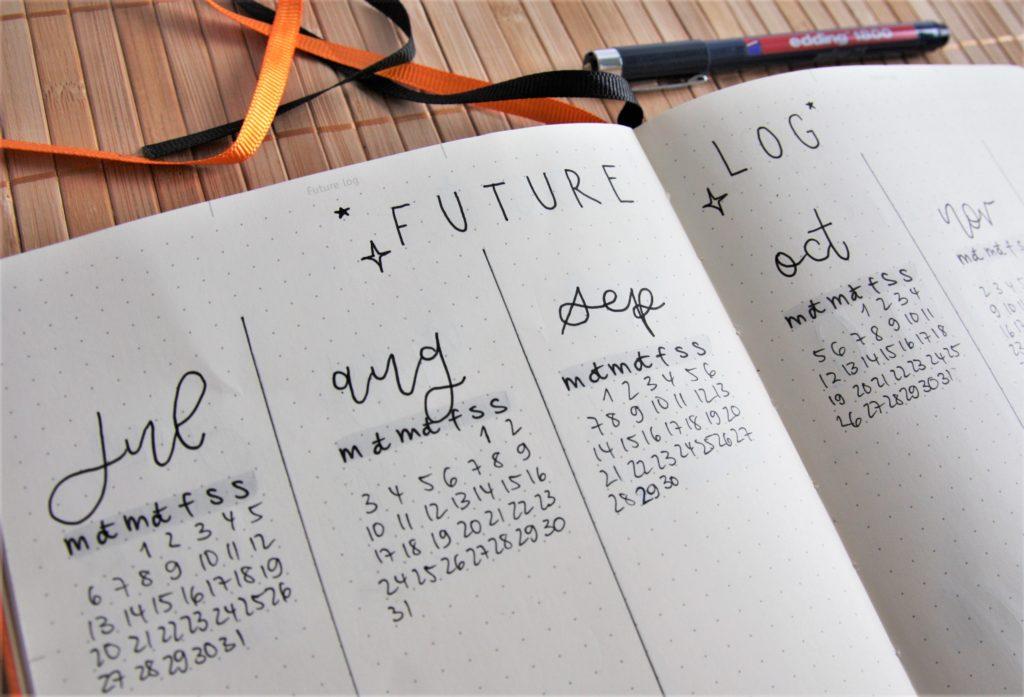 edding 1800
Future log
FUTURE LOG
jul
m d m d f s s
1 2 3 4 5
6 7 8 9 10 11 12
13 14 15 16 17 18 19
20 21 22 23 24 25 26
27 28 29 30 31
aug
m d m d f s s
1 2
3 4 5 6 7 8 9
10 11 12 13 14 15 16
17 18 19 20 21 22 23
24 25 26 27 28 29 30
31
sep
m d m d f s s
1 2 3 4 5 6
7 8 9 10 11 12 13
14 15 16 17 18 19 20
21 22 23 24 25 26 27
28 29 30
oct
m d m d f s s
1 2 3 4
5 6 7 8 9 10 11
12 13 14 15 16 17 18
19 20 21 22 23 24 25
26 27 28 29 30 31
nov
m d m d f s
2 3 4 5
9 10 11